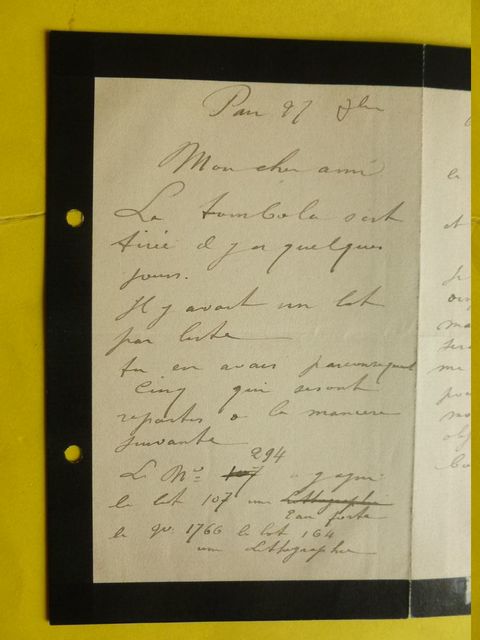 Pau 27 7bre
Mon cher ami
La tombola s'est
tirée il y a quelques
jours.
Il y avait un lot
par liste
tu en avais parconsequent
cinq qui seront
repartis a la maniere
suivante
294
Le No 107 a gagné
le lot 107 une Lithographie
Eau forte
le No 1766 le lot 164
une Lithographie
la
et